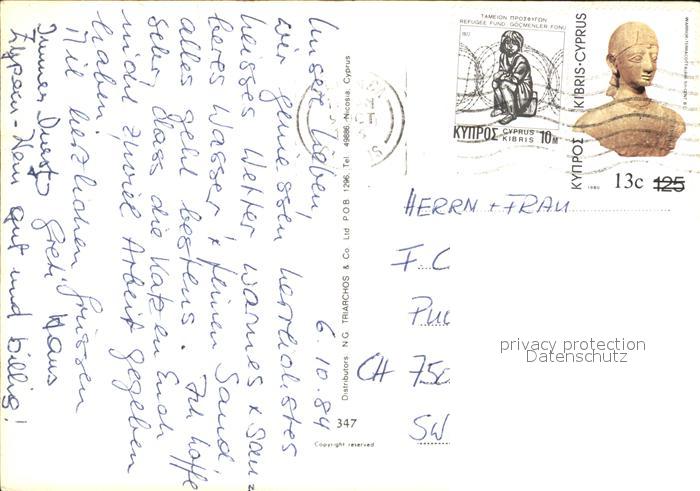 6.10.84
Unsere Lieben,
wir geniessen herrlichstes
heisses Wetter warmes + sau=
beres Wasser + feinen Sand
alles geht bestens. Ich hoffe
sehr dass die Katzen Euch
nicht zuviel Arbeit gegeben
haben,
Mit herzlichen Grüssen
Hans
gut und billig!
Distributors: N.G. TRIARCHOS & Co. Ltd P.O.B. 1296, Tel. 49886, Nicosia, Cyprus
347
Copyright reserved
ΤΑΜΕΙΟΝ ΠΡΟΣΦΥΓΩΝ
REFUGEE FUND GÖÇMENLER FONU
1977
ΚΥΠΡΟΣ CYPRUS KIBRIS 10M
ΚΥΠΡΟΣ KIBRIS·CYPRUS
1980
13c 125
HERRN + FRAU
F. C
CH 75
SW
privacy protection
Datenschutz